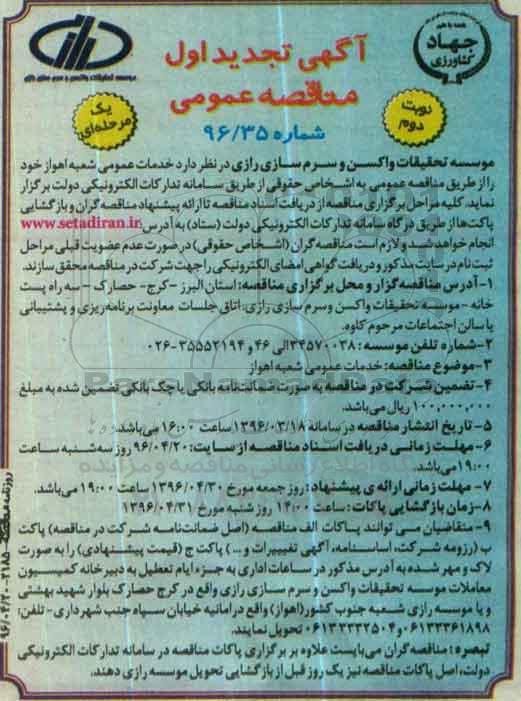 همه با هم
جهاد
کشاورزی
آگهی تجدید اول
مناقصه عمومی
شماره ۹۶/۳۵
نوبت
دوم
یک
مرحله‌ای
موسسه تحقیقات واکسن و سرم سازی رازی در نظر دارد خدمات عمومی شعبه اهواز خود
را از طریق مناقصه عمومی به اشخاص حقوقی از طریق سامانه تدارکات الکترونیکی دولت برگزار
نماید. کلیه مراحل برگزاری مناقصه از دریافت اسناد مناقصه تا ارائه پیشنهاد مناقصه گران و بازگشایی
پاکت‌ها از طریق درگاه سامانه تدارکات الکترونیکی دولت (ستاد) به آدرس www.setadiran.ir
انجام خواهد شد و لازم است مناقصه گران (اشخاص حقوقی) در صورت عدم عضویت قبلی مراحل
ثبت نام در سایت مذکور و دریافت گواهی امضای الکترونیکی را جهت شرکت در مناقصه محقق سازند.
۱-آدرس مناقصه گزار و محل برگزاری مناقصه: استان البرز -کرج- حصارک - سه راه پست
خانه -موسسه تحقیقات واکسن و سرم سازی رازی. اتاق جلسات معاونت برنامه ریزی و پشتیبانی
یا سالن اجتماعات مرحوم کاوه.
۲-شماره تلفن موسسه: ۳۴۵۷۰۰۳۸الی ۴۶ و ۳۵۵۵۲۱۹۴-۰۲۶
۳-موضوع مناقصه: خدمات عمومی شعبه اهواز
۴-تضمین شرکت در مناقصه به صورت ضمانت‌نامه بانکی یا چک بانکی تضمین شده به مبلغ
۱۰۰,۰۰۰,۰۰۰ ریال می‌باشد.
۵- تاریخ انتشار مناقصه در سامانه ۱۳۹۶/۰۳/۱۸ ساعت ۱۶:۰۰ می‌باشد.
۶-مهلت زمانی دریافت اسناد مناقصه از سایت: ۹۶/۰۴/۲۰ روز سه‌شنبه ساعت
۱۹:۰۰ می‌باشد.
۷- مهلت زمانی ارائه ی پیشنهاد: روز جمعه مورخ ۱۳۹۶/۰۴/۳۰ ساعت ۱۹:۰۰ می‌باشد.
۸-زمان بازگشایی پاکات: ساعت ۱۴:۰۰ روز شنبه مورخ ۱۳۹۶/۰۴/۳۱
۹-متقاضیان می توانند پاکات الف مناقصه (اصل ضمانت‌نامه شرکت در مناقصه) پاکت
ب (رزومه شرکت، اساسنامه، آگهی تغییرات و ...) پاکت ج (قیمت پیشنهادی) را به صورت
لاک و مهر شده به آدرس مذکور در ساعات اداری به جزء ایام تعطیل به دبیرخانه کمیسیون
معاملات موسسه تحقیقات واکسن و سرم سازی رازی واقع در کرج حصارک بلوار شهید بهشتی
و یا موسسه رازی شعبه جنوب کشور(اهواز) واقع در امانیه خیابان سپاه جنب شهرداری- تلفن:
۰۶۱۳۳۳۶۱۸۹۸ و ۰۶۱۳۳۳۳۲۵۰۴ تحویل نمایند.
تبصره: مناقصه گران می‌بایست علاوه بر برگزاری پاکات مناقصه در سامانه تدارکات الکترونیکی
دولت، اصل پاکات مناقصه نیز یک روز قبل از بازگشایی تحویل موسسه رازی دهند.